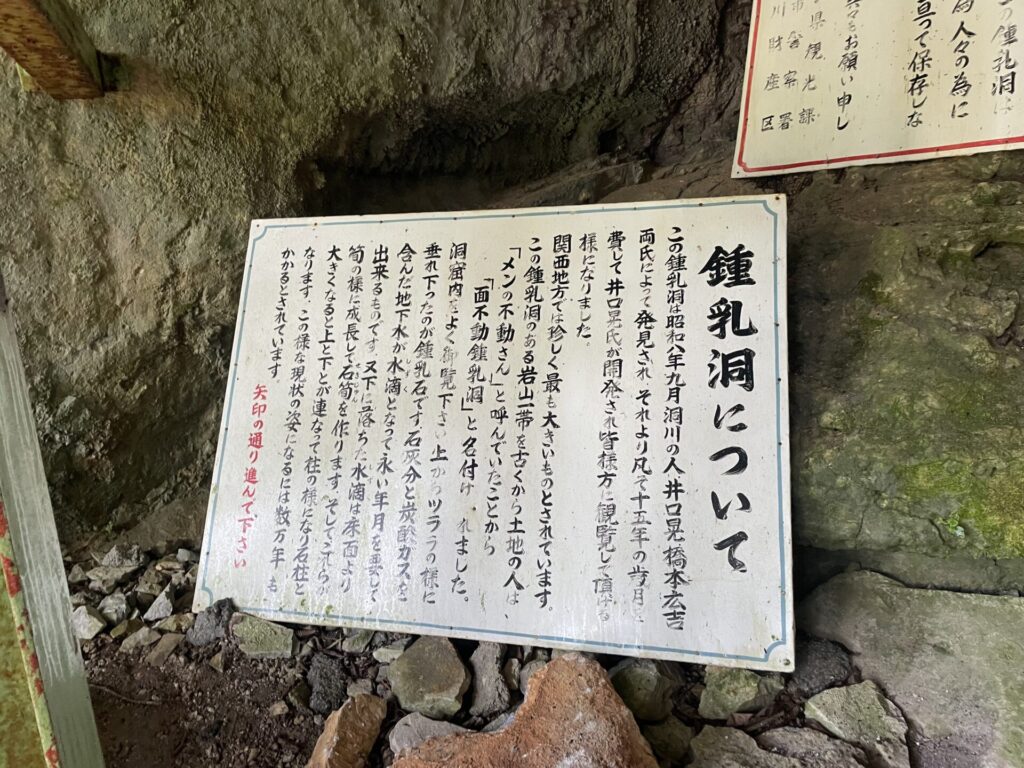 鍾乳洞について
この鍾乳洞は昭和八年九月洞川の人井口晃橋本宏吉
両氏によって発見され それより凡そ十五年の歩月を
費して井口晃氏が開発され皆様方に観覧して頂ける
様になりました。
関西地方では珍しく最も大きいものとされています。
この鍾乳洞のある岩山一帯を古くから土地の人は、
「メンの不動さん」と呼んでいたことから
「面不動鍾乳洞」と名付け れました。
洞窟内をよく御覧下さい 上からツララの様に
垂れ下ったのが鍾乳石です 石灰分と炭酸ガスを
含んだ地下水が水滴となって永い年月を要して
出来るものです 又下に落ちた水滴は床面より
筍の様に成長して石筍を作ります そしてこれらが
大きくなると上と下とが連なって柱の様になり石柱と
なります。この様な現状の姿になるには数万年も
かかるとされています。
矢印の通り進んで下さい
の鍾乳洞は
為人々の為に
亘って保存しな
々をお願い申し
県観光課
警察署
川財産区